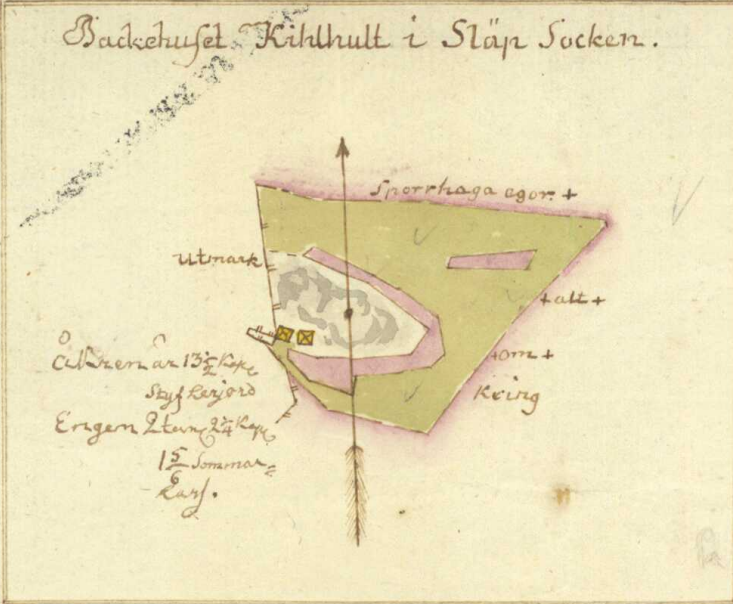 Backehuset Kihlhult i Släp Socken.
Sporrhaga egor. +
Utmark
+ alt +
+ om +
Kring
Åkren är 13 1/2 Kap
Styf Lerjord
Engen 2 tun 2 1/4 Kap
1 5/6 Sommar=
Lass.